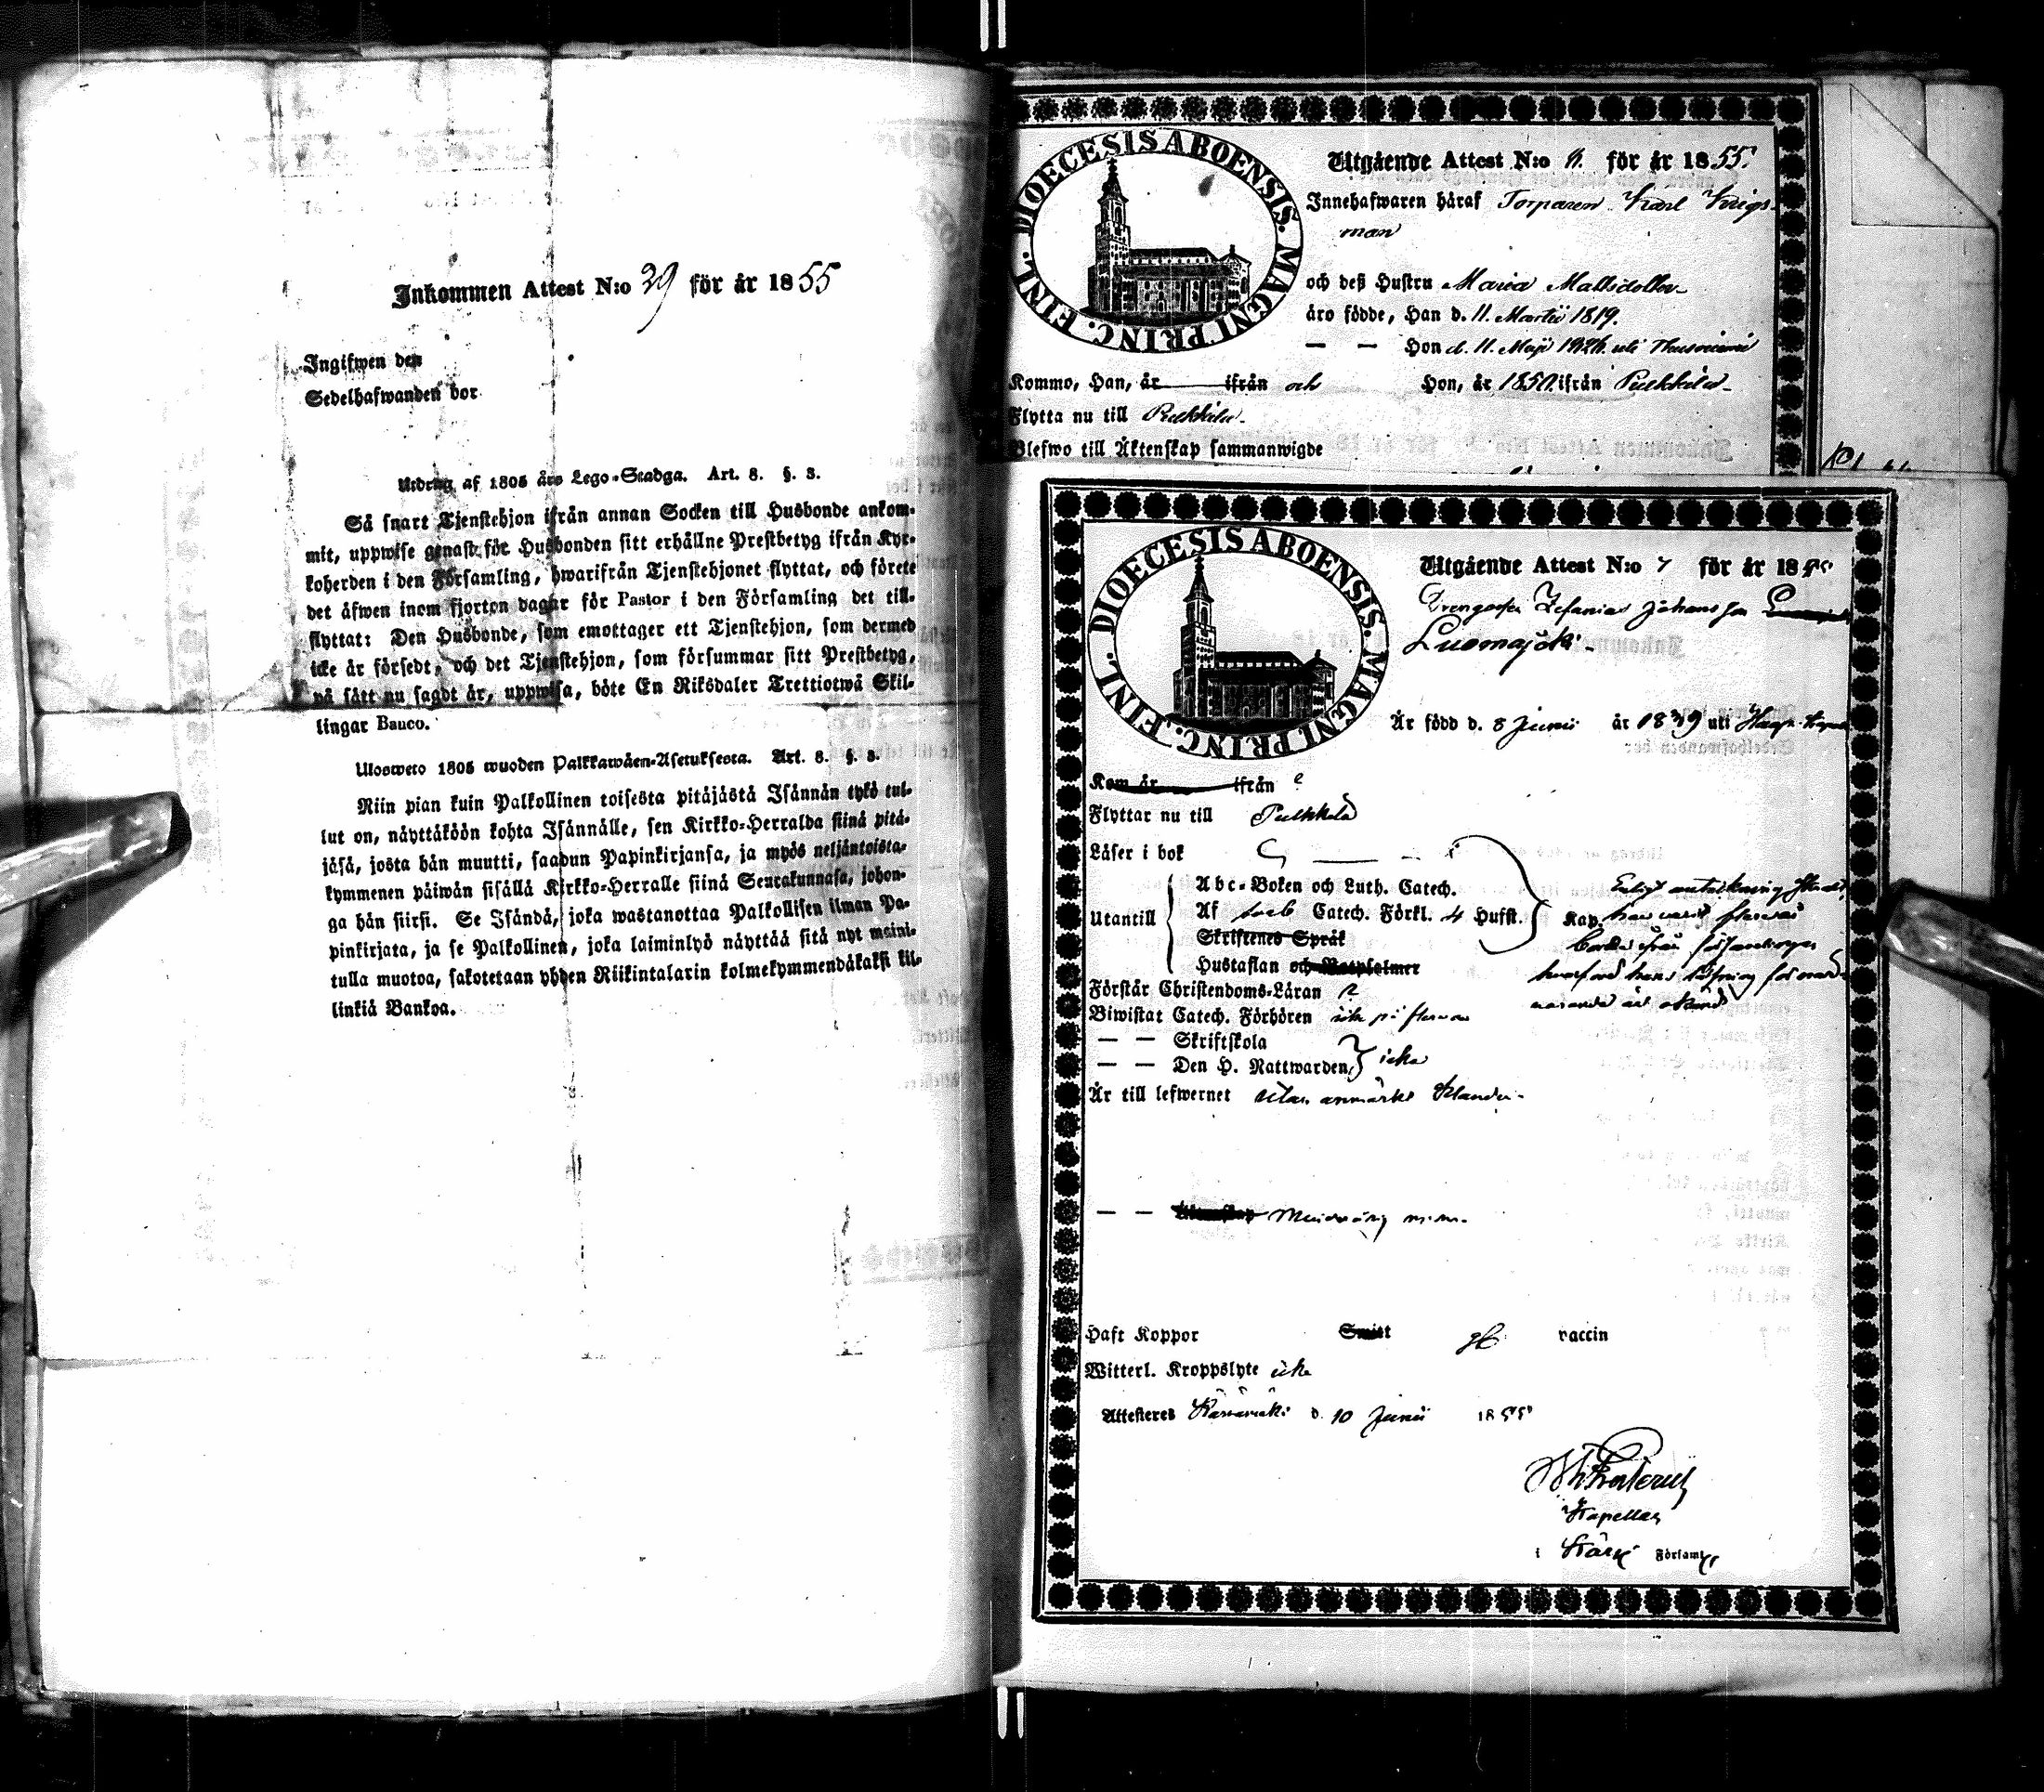 Inkommen Attest N:o 29 för år 1855
Ingifwen den
Sedelhafwanden bor
Utdrag af 1805 års Lego-Stadga. Art. 8. §. 3.
Så snart Tjenstehjon ifrån annan Socken till Husbonde ankom-
mit, uppwise genast för Husbonden sitt erhållne Prestbetyg ifrån Kyr-
koherden i den Församling, hwarifrån Tjenstehjonet flyttat, och förete
det äfwen inom fjorton dagar för Pastor i den Församling det till-
flyttat: Den Husbonde, som emottager ett Tjenstehjon, som dermed
icke är försedt, och det Tjenstehjon, som försummar sitt Prestbetyg,
på sätt nu sagdt är, uppwisa, böte En Riksdaler Trettiotwå Skil-
lingar Banco.
Ulosweto 1805 wuoden Palkkawäen-Asetuksesta. Art. 8. §. 3.
Niin pian kuin Palkollinen toisesta pitäjästä Isännän tykö tul-
lut on, näyttäköön kohta Isännälle, sen Kirkko-Herralda siinä pitä-
jäsä, josta hän muutti, saadun Papinkirjansa, ja myös neljäntoista-
kymmenen päiwän sisällä Kirkko-Herralle siinä Seurakunnasa, johon-
ga hän siirsi. Se Isändä, joka wastanottaa Palkollisen ilman Pa-
pinkirjata, ja se Palkollinen, joka laiminlyö näyttää sitä nyt maini-
tulla muotoa, sakotetaan yhden Riikintalarin kolmekymmendäkaksi kil-
linkiä Bankoa.
DIOECESIS ABOENSIS. MAGNI PRINC. FINL.
Utgående Attest N:o 11. för år 1855.
Innehafwaren häraf Torparen Karl Krigs-
man
och deß Hustru Maria Mattsdotter
äro födde, Han d. 11. Martii 1819.
— — Hon d. 11. Maji 1826. uti
Kommo, Han, år ifrån och Hon, år 1850. ifrån Pulkkila
Flytta nu till Pulkkila
Blefwo till Äktenskap sammanwigde
DIOECESIS ABOENSIS. MAGNI PRINC. FINL.
Utgående Attest N:o 7 för år 1855
Drengen Zefanias Johansson
Luomajoki
Är född d. 8 Junii år 1839 uti
Kom år ifrån ?
Flyttar nu till Pulkkila
Läser i bok
Utantill Abc-Boken och Luth. Catech.
Af Catech. Förkl. 4 Hufst. Kap
Skriftenes Språk
Hustaflan och Botpsalmer
Enligt anteckning
har varit
ifrån församlingen
hans
är okänd
Förstår Christendoms-Läran ?
Biwistat Catech. Förhören icke på flera år
— — Skriftskola
— — Den H. Nattwarden icke
Är till lefwernet utan anmärkt klander
— — Äktenskap
Haft Koppor Smitt vaccin
Witterl. Kroppslyte icke
Attesteres Kärsämäki d. 10 Junii 1855
Kapellan
i Församl